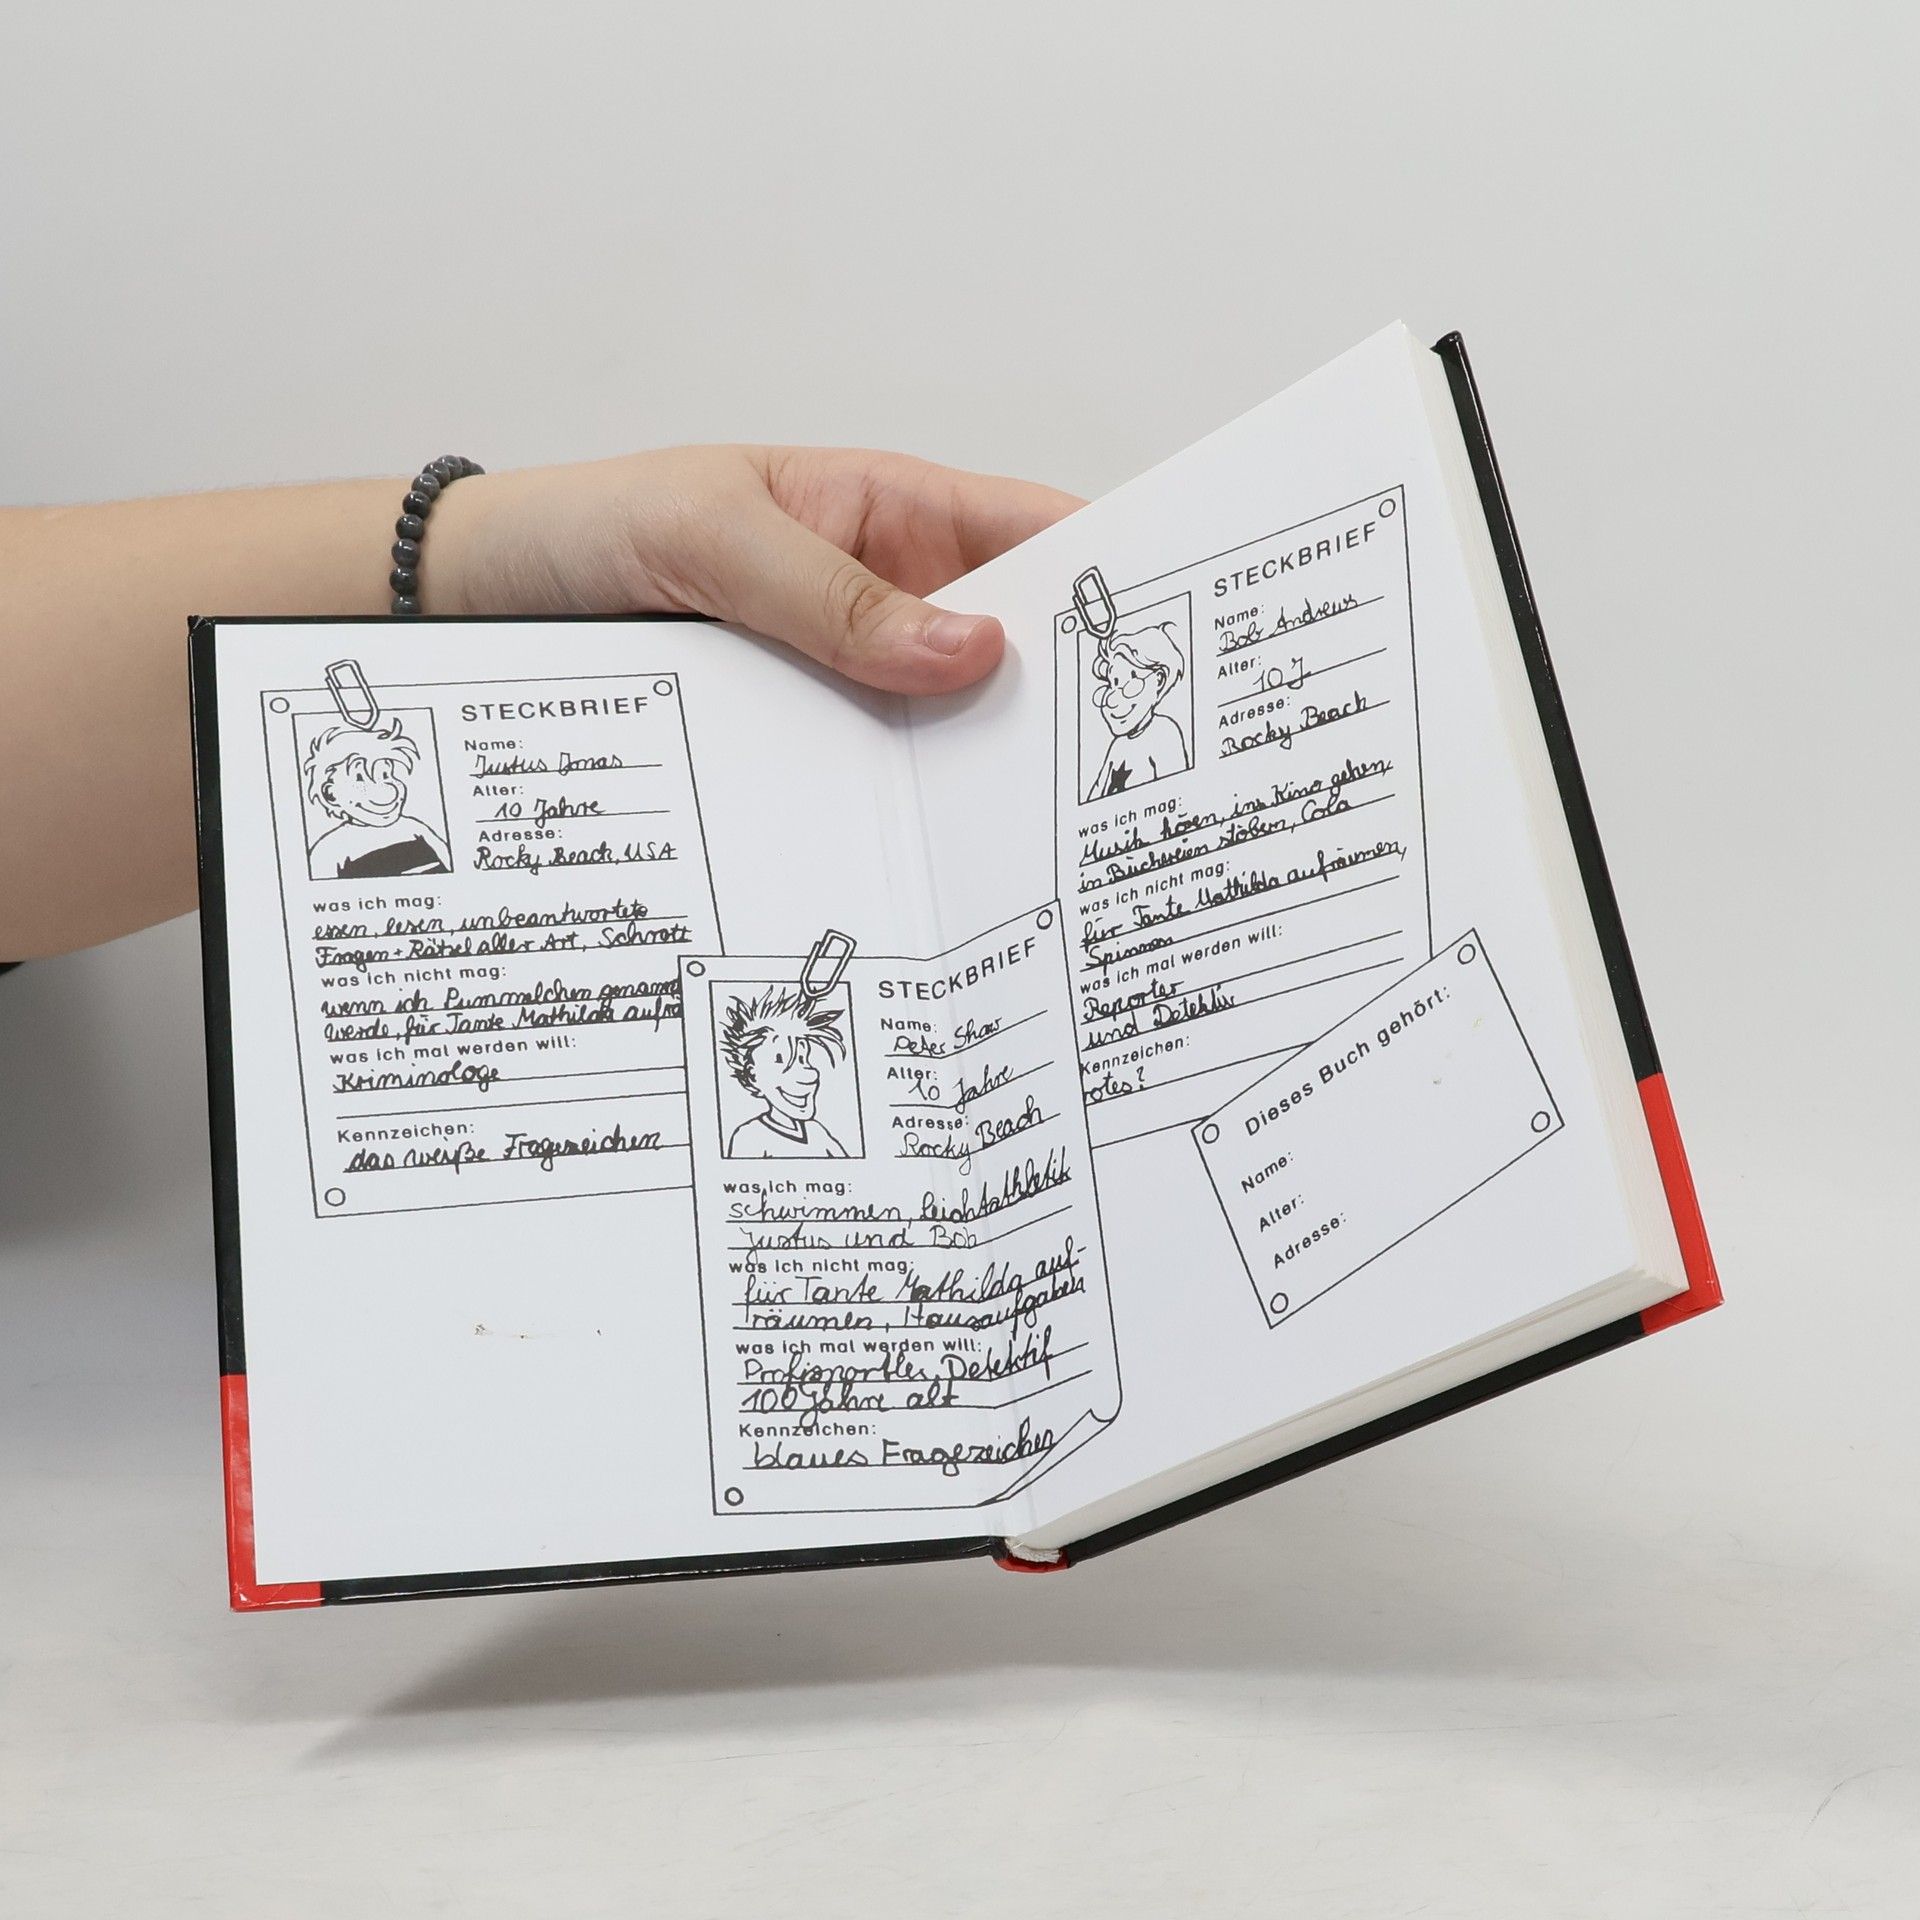 STECKBRIEF
Name:
Justus Jonas
Alter:
10 Jahre
Adresse:
Rocky Beach, USA
was ich mag:
essen, lesen, unbeantwortete
Fragen + Rätsel aller Art, Schrott
was ich nicht mag:
wenn ich Pummelchen genannt
werde, für Tante Mathilda aufrä
was ich mal werden will:
Kriminologe
Kennzeichen:
das weiße Fragezeichen
STECKBRIEF
Name:
Peter Shaw
Alter:
10 Jahre
Adresse:
Rocky Beach
was ich mag:
schwimmen, Leichtathletik
Justus und Bob
was ich nicht mag:
für Tante Mathilda auf-
räumen, Hausaufgaben
was ich mal werden will:
Profisportler, Detektif
100 Jahre alt
Kennzeichen:
blaues Fragezeichen
STECKBRIEF
Name:
Bob Andrews
Alter:
10 J.
Adresse:
Rocky Beach
was ich mag:
Musik hören, ins Kino gehen,
in Büchereien stöbern, Cola
was ich nicht mag:
für Tante Mathilda aufräumen,
Spinnen
was ich mal werden will:
Reporter
und Detektiv
Kennzeichen:
rotes ?
Dieses Buch gehört:
Name:
Alter:
Adresse: